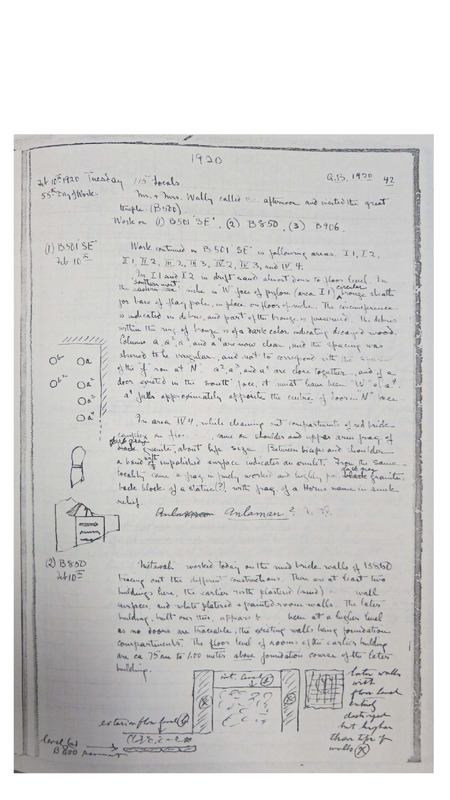 1920
Feb 10th 1920 Tuesday 115 locals G.B. 1920 42
55th Day of Work Mr. & Mrs. Wally called afternoon and visited the great
temple (B500).
Work on (1) B501 SE, (2) B850, (3) B906.
(1) B501 SE Work continued in B501 SE in following areas. I 1, I 2,
Feb 10th II 1, II 2, III 2, III 3, IV 2, IV 3, and IV 4.
In I 1 and I 2 in drift sand almost down to floor level. In
the southernmost niche in W face of pylon (area I 1) circular bronze sheath
for base of flag pole, in place on floor of niche. The circumference
is indicated in debris, and part of the bronze is preserved. The debris
within the ring of bronze is of a dark color indicating decayed wood.
Columns a, a², a³ and a⁴ are now clear, and the spacing was
showed to be irregular, and not to correspond with the
of the row at N. a², a³, and a⁴ are close together, and if a
door existed in the south face, it must have been W of a⁴.
a⁴ falls approximately opposite the centre of door in N face
In area IV 4, while clearing out compartments of red brick
came on shoulder and upper arm frag of
dark gray granite, about life size. Between biceps and shoulder
a band of unpolished surface indicates an armlet. From the same
locality came a frag finely worked and highly dark gray granite,
back block of a statue (?), with frag of a Horus name in sunk
relief.
Anlaman ?
(2) B850 worked today on the mud brick walls of B850
Feb 10th tracing out the different constructions. There are at least two
buildings here, the earlier with plastered (mud) wall
surfaces, and white plastered & painted room walls. The later
building, built over this, appears been at a higher level
as no doors are traceable, the existing walls being foundation
compartments. The floor level of rooms of the earlier building
are ca 75 cm to 1.00 meter above foundation course of the later
building.
later walls
with
floor level
being
destroyed
but higher
than tops of
walls (X)
exterior floor level
level (a)
B800